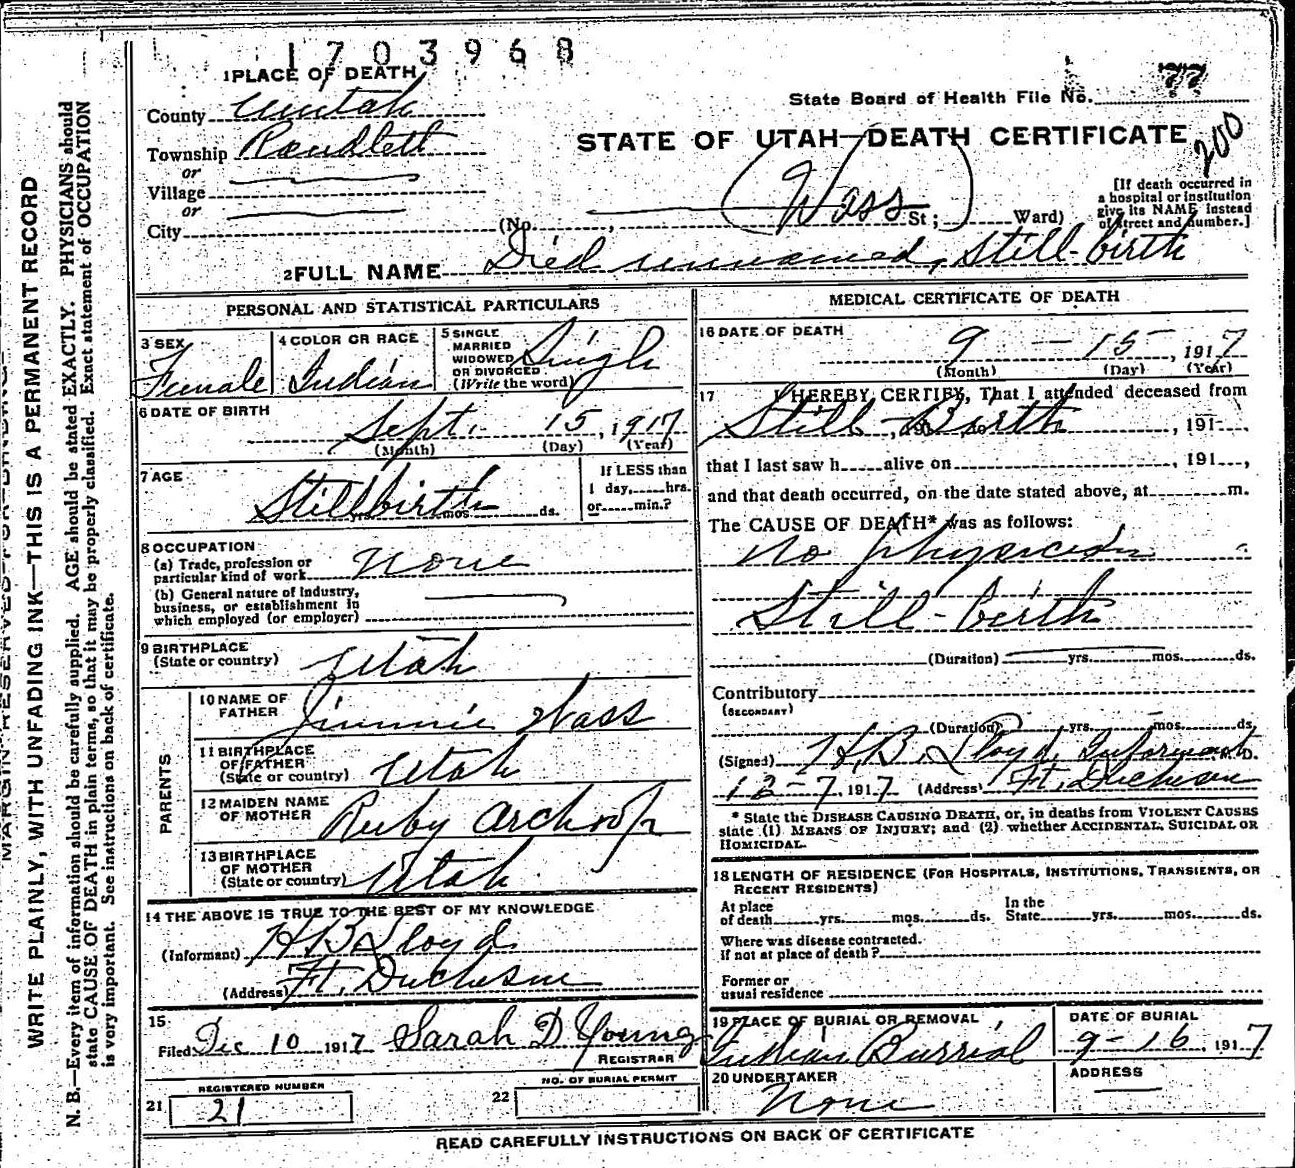 1703968
1 PLACE OF DEATH
County Uintah
Township Randlett
or
Village
or
City
State Board of Health File No. 77
200
STATE OF UTAH—DEATH CERTIFICATE
(Wass)
(No. , St; Ward)
[If death occurred in
a hospital or institution
give its NAME instead
of street and number.]
2 FULL NAME Died unnamed, Still-birth
PERSONAL AND STATISTICAL PARTICULARS
3 SEX
Female
4 COLOR OR RACE
Indian
5 SINGLE
MARRIED
WIDOWED
OR DIVORCED
(Write the word)
Single
6 DATE OF BIRTH
Sept. 15, 1917
(Month) (Day) (Year)
7 AGE
Stillbirth
mos. ds.
If LESS than
1 day, hrs.
or min.?
8 OCCUPATION
(a) Trade, profession or
particular kind of work None
(b) General nature of Industry,
business, or establishment in
which employed (or employer)
9 BIRTHPLACE
(State or country) Utah
PARENTS
10 NAME OF
FATHER Jimmie Wass
11 BIRTHPLACE
OF FATHER
(State or country) Utah
12 MAIDEN NAME
OF MOTHER Ruby Archoop
13 BIRTHPLACE
OF MOTHER
(State or country) Utah
14 THE ABOVE IS TRUE TO THE BEST OF MY KNOWLEDGE
(Informant) H B Lloyd
(Address) Ft. Duchesne
15
Filed Dec 10 1917 Sarah D Young
REGISTRAR
REGISTERED NUMBER
21 21
NO. OF BURIAL PERMIT
22
MEDICAL CERTIFICATE OF DEATH
16 DATE OF DEATH
9 — 15, 1917
(Month) (Day) (Year)
17 I HEREBY CERTIFY, That I attended deceased from
Still Birth, 191 ,
that I last saw h alive on , 191 ,
and that death occurred, on the date stated above, at m.
The CAUSE OF DEATH* was as follows:
No physician
Still-birth
(Duration) yrs. mos. ds.
Contributory
(SECONDARY)
(Duration) yrs. mos. ds.
(Signed) H.B. Lloyd, Informant M. D.
12-7, 1917 (Address) Ft. Duchesne
* State the DISEASE CAUSING DEATH, or, in deaths from VIOLENT CAUSES
state (1) MEANS OF INJURY; and (2) whether ACCIDENTAL, SUICIDAL OR
HOMICIDAL.
18 LENGTH OF RESIDENCE (FOR HOSPITALS, INSTITUTIONS, TRANSIENTS, OR
RECENT RESIDENTS)
At place
of death yrs. mos. ds.
In the
State yrs. mos. ds.
Where was disease contracted.
If not at place of death?
Former or
usual residence
19 PLACE OF BURIAL OR REMOVAL
Indian Burrial
DATE OF BURIAL
9-16, 1917
20 UNDERTAKER
None
ADDRESS
READ CAREFULLY INSTRUCTIONS ON BACK OF CERTIFICATE
MARGIN RESERVED FOR BINDING
WRITE PLAINLY, WITH UNFADING INK—THIS IS A PERMANENT RECORD
N. B.—Every item of information should be carefully supplied. AGE should be stated EXACTLY. PHYSICIANS should
state CAUSE OF DEATH in plain terms, so that it may be properly classified. Exact statement of OCCUPATION
is very important. See instructions on back of certificate.